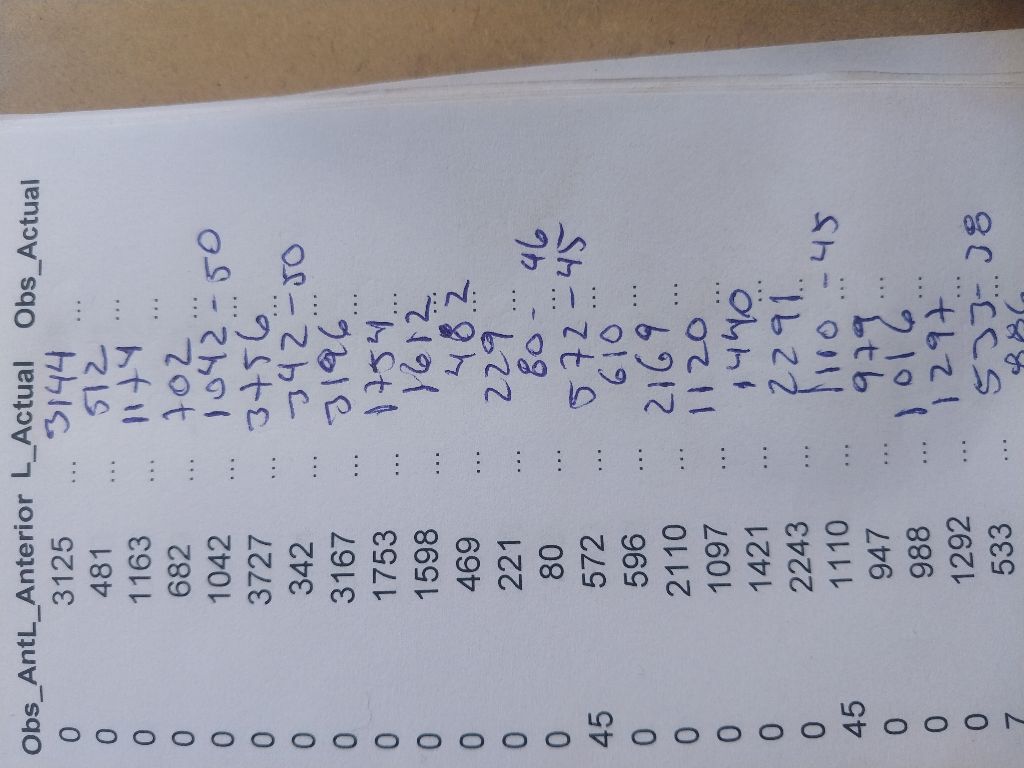 Obs_AntL_Anterior L_Actual Obs_Actual
0 3125 ... 3144 ...
0 481 ... 512 ...
0 1163 ... 1174 ...
0 682 ... 702 ...
0 1042 ... 1042 - 50 ...
0 3727 ... 3756 ...
0 342 ... 342 - 50 ...
0 3167 ... 3196 ...
0 1753 ... 1754 ...
0 1598 ... 1612 ...
0 469 ... 482 ...
0 221 ... 229 ...
0 80 ... 80 - 46 ...
45 572 ... 572 - 45 ...
0 596 ... 610 ...
0 2110 ... 2169 ...
0 1097 ... 1120 ...
0 1421 ... 1440 ...
0 2243 ... 2291 ...
45 1110 ... 1110 - 45 ...
0 947 ... 979 ...
0 988 ... 1016 ...
0 1292 ... 1297 ...
7 533 ... 533 - 38